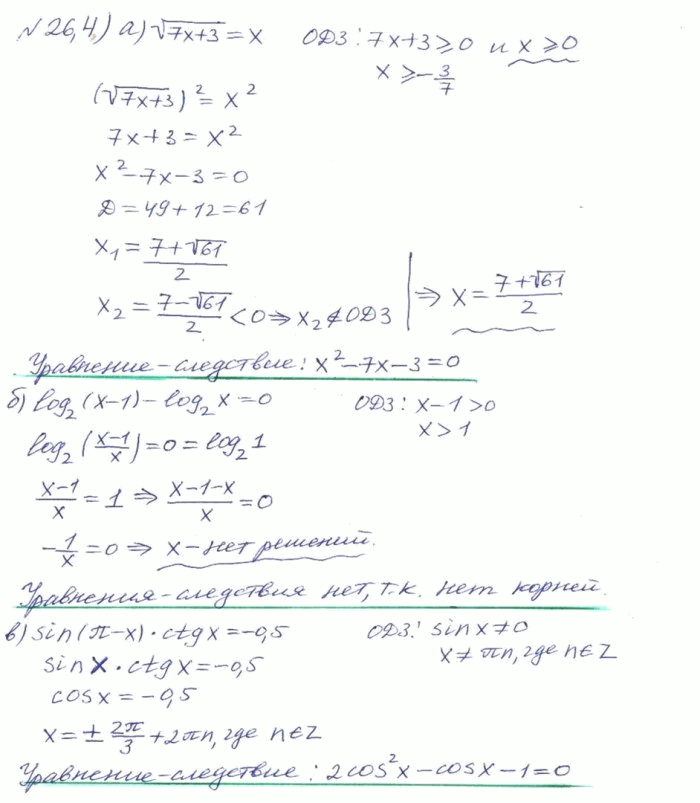 №26,4) а) √(7x+3) = x ОДЗ: 7x+3≥0 и x≥0
x ≥ -3/7
(√(7x+3))² = x²
7x+3 = x²
x²-7x-3=0
D=49+12=61
x₁ = (7+√61)/2
x₂ = (7-√61)/2 <0 ⇒ x₂∉ОДЗ | ⇒ x = (7+√61)/2
Уравнение-следствие: x²-7x-3=0
б) log₂(x-1)-log₂x=0 ОДЗ: x-1>0
x>1
log₂((x-1)/x)=0=log₂1
(x-1)/x = 1 ⇒ (x-1-x)/x = 0
-1/x = 0 ⇒ x-нет решений.
Уравнения-следствия нет, т.к. нет корней.
в) sin(π-x)·ctgx=-0,5 ОДЗ: sinx≠0
x≠πn, где n∈Z
sinx·ctgx=-0,5
cosx=-0,5
x=±2π/3+2πn, где n∈Z
Уравнение-следствие: 2cos²x-cosx-1=0